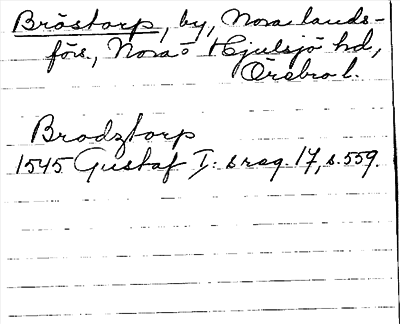 Bröstorp, by, Nora lands-
förs., Nora o Hjulsjö hd,
Örebro l.
Brodztorp
1545 Gustaf I: s reg. 17, s. 559.